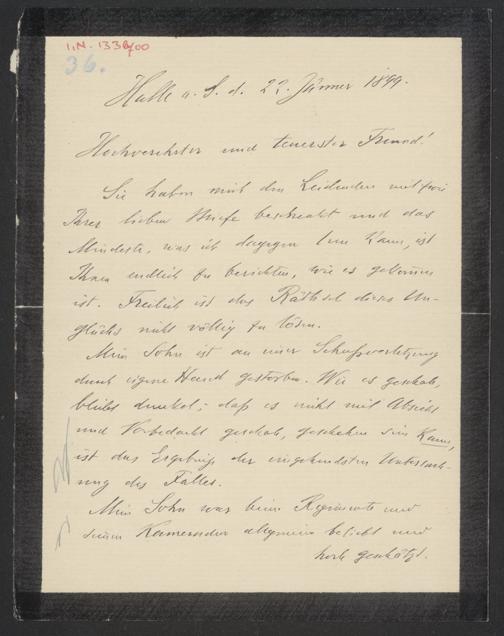 I.N. 133600
36.
Halle a. S. d. 22. Jänner 1899.
Hochverehrter und teuerster Freund!
Sie haben mich den Leidenden mit zwei
Ihrer lieben Briefe beschenkt und das
Mindeste, was ich dagegen tun kann, ist
Ihnen endlich zu berichten, wie es gekommen
ist. Freilich ist das Räthsel dieses Un-
glücks nicht völlig zu lösen.
Mein Sohn ist an einer Schußverletzung
durch eigene Hand gestorben. Wie es geschah,
bleibt dunkel; daß es nicht mit Absicht
und Vorbedacht geschah, geschehen sein kann,
ist das Ergebniß der eingehendsten Untersuch-
ung des Falles.
Mein Sohn war beim Regimente und
seinen Kameraden allgemein beliebt und
hoch geschätzt.